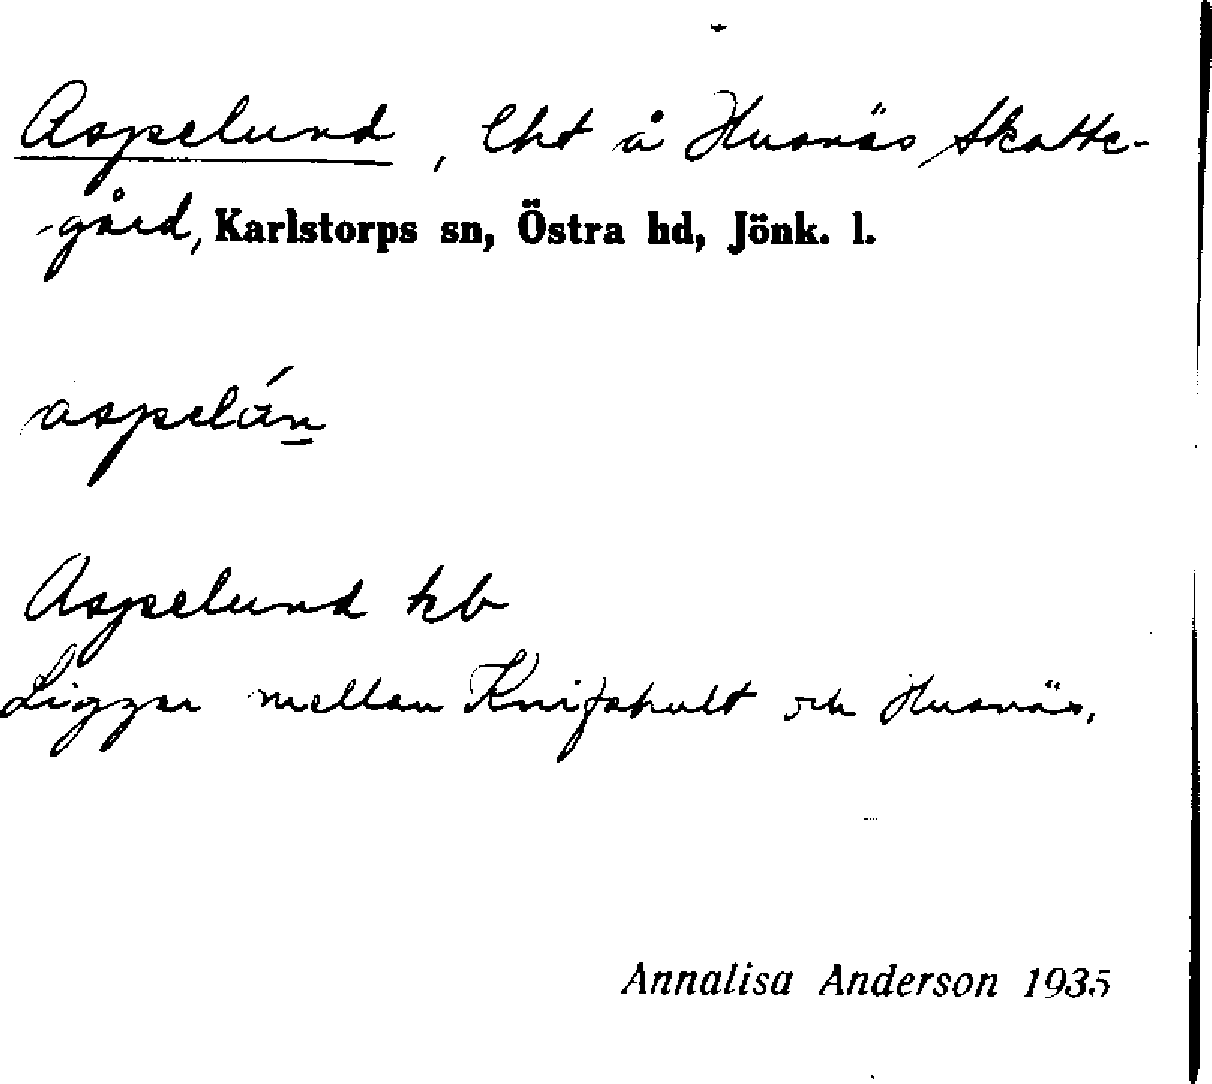 Aspelund, lht å Husnäs Skatte-
gård, Karlstorps sn, Östra hd, Jönk. l.
aspelún
Aspelund kb
Ligger mellan Knifshult och Husnäs.
Annalisa Anderson 1935